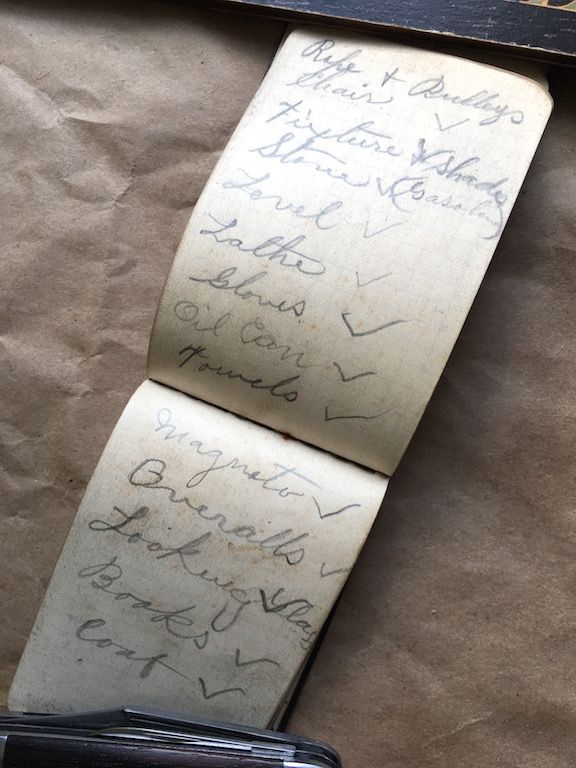 Rope + Pulleys
Chair ✓
Fixture & Shade
Stove ✓ (Gasoline)
Level ✓
Lathe ✓
Gloves ✓
Oil Can ✓
Towels ✓
Magneto ✓
Overalls ✓
Looking Glass ✓
Books ✓
Coat ✓